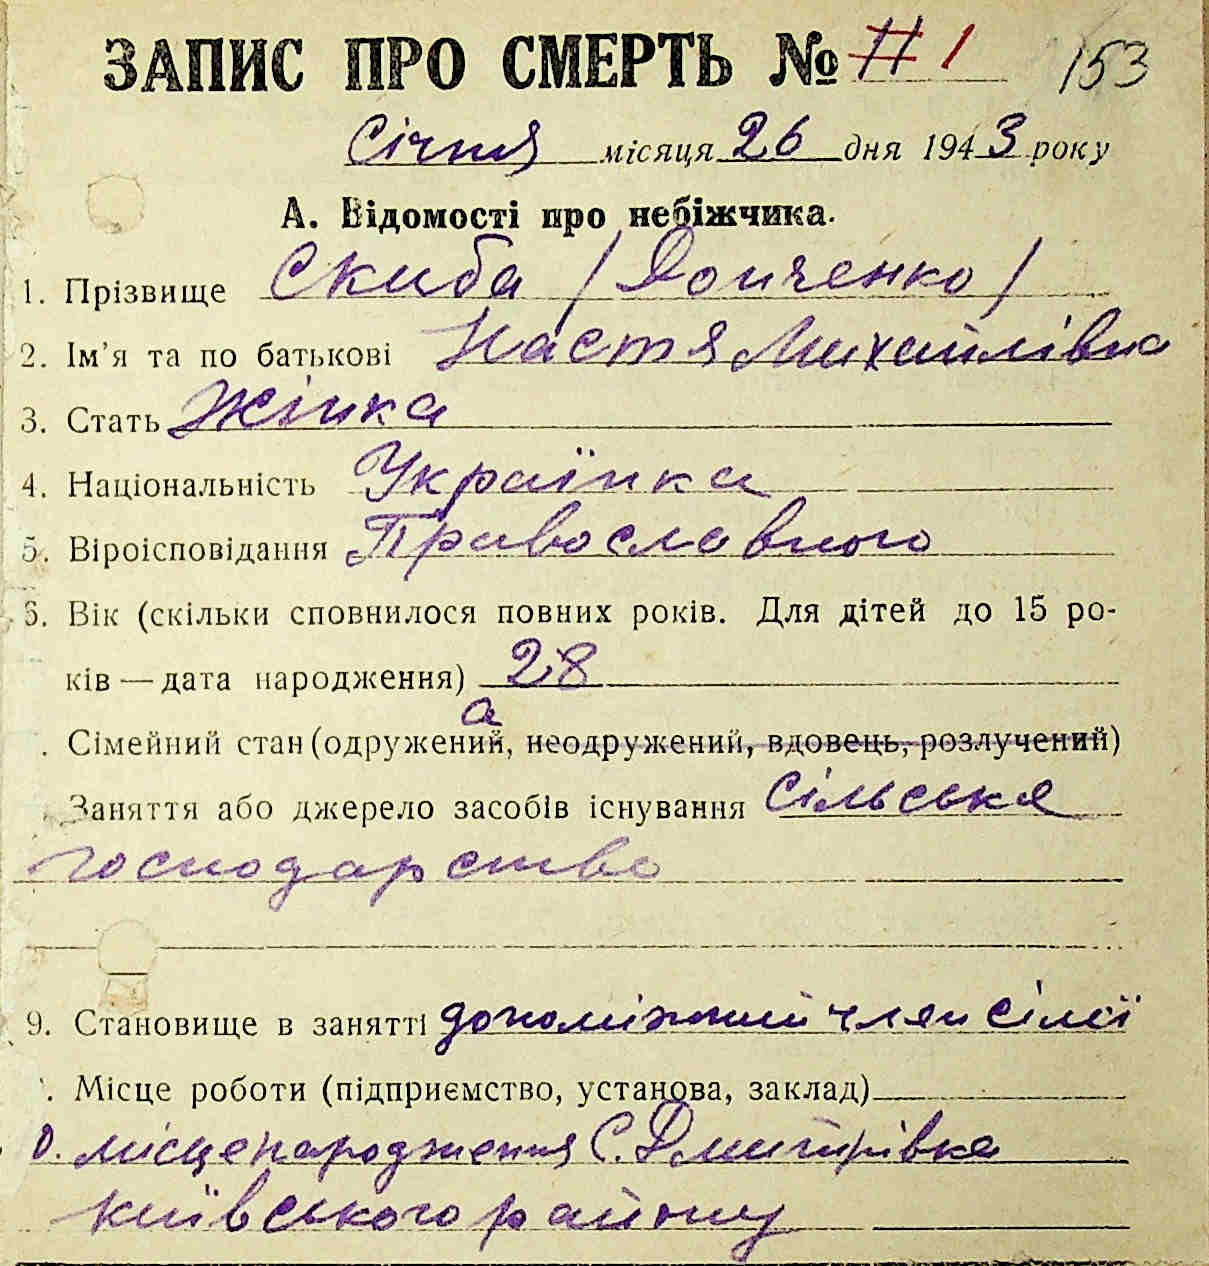 ЗАПИС ПРО СМЕРТЬ № 1 153
Січня місяця 26 дня 1943 року
А. Відомості про небіжчика.
1. Прізвище Скиба /Донченко/
2. Ім'я та по батькові Настя Михайлівна
3. Стать Жінка
4. Національність Українка
5. Віроісповідання Православного
6. Вік (скільки сповнилося повних років. Для дітей до 15 ро-
ків — дата народження) 28
а
. Сімейний стан (одружений, неодружений, вдовець, розлучений)
Заняття або джерело засобів існування Сільське
господарство
9. Становище в занятті допоміжний член сімї
. Місце роботи (підприємство, установа, заклад)
0. місце народження С. Дмитрівка
київського району